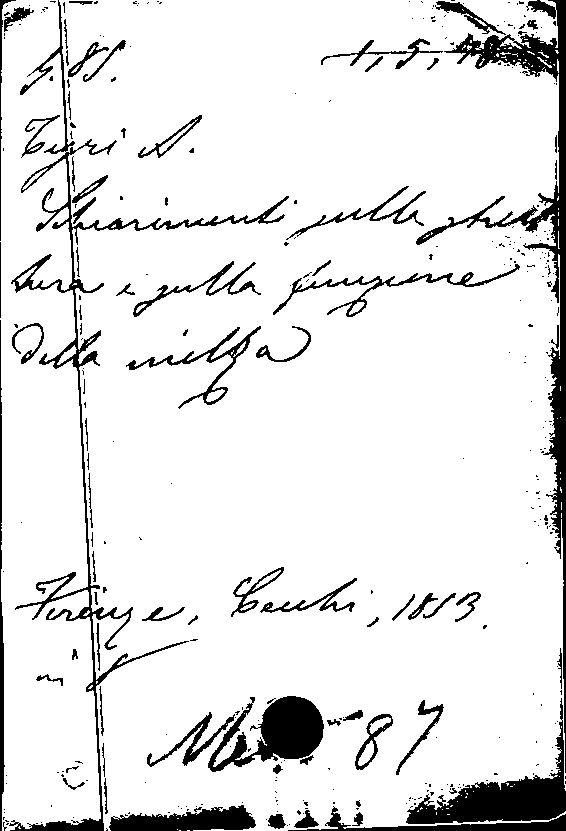 G. 85.
1, 5, 78
Tigri A.
Schiarimenti sulla strut
tura e sulla funzione
della milza
Firenze, Cecchi, 1853.
in 8
87